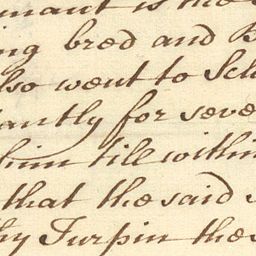 mant is the
ing bred and B
lso went to Scho
tantly for seve
him till within
that the said
hy Turpin the